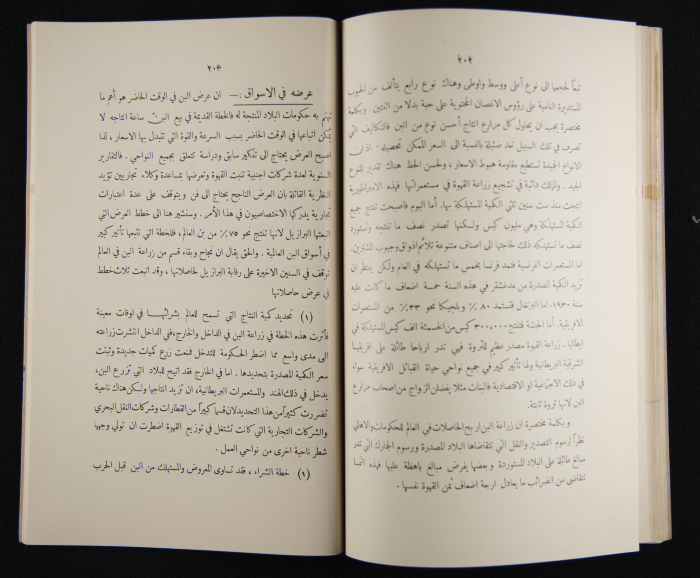 ٢٠٢
تبعاً لحجمها الى نوع أعلى ووسط واوطى وهناك نوع رابع يتألف من الحبوب
المستديرة النامية على رؤوس الاغصان المحتوية على حبة بدلا من اثنتين . وبكلمة
مختصرة يجب ان يحاول كل مزارع انتاج أحسن نوع من البن فالتكاليف التي
تصرف في تلك السبيل تعد ضئيلة بالنسبة الى السعر الممكن تحصيله . اذ ان
الانواع الجيدة تستطيع مقاومة هبوط الاسعار ، ولحسن الحظ هناك تقدير للنوع
الجيد . والمالك دائبة في تشجيع زراعة القهوة في مستعمراتها فهذه الامبراطورية
انتجت منذ ست سنين ثلثي الكمية المستهلكة بها . أما اليوم فاصبحت تنتج جميع
الكمية المستهلكة وهي مليون كيس ولكنها تصدر نصف ما تنتجه وتستورد
نصف ما تستهلكه ذلك لحاجتها الى اصناف متنوعة تلائم اذواق وجيوب المشترين .
اما المستعمرات الفرنسية فتمد فرنسا بخمس ما تستهلكه في العام ولكن ينتظر ان
تزيد الكمية المصدرة من مدغشقر في هذه السنة خمسة اضعاف ما كانت عليه
سنة ١٩٣٠ . اما البرتغال فتستمد ٨٠ ٪ وبلجيكا نحو ٣٣ ٪ من المستعمرات
الافريقية . أما الحبشة فتنتج ٣٠٠,٠٠٠ كيس من الخمسمئة الف كيس المستهلكة في
ايطاليا . وزراعة القهوة مصدر عظيم للثروة فهي تدر ارباحا طائلة على افريقيا
الشرقية البريطانية ولها تأثير كبير في جميع نواحي حياة القبائل الافريقية سواء
في ذلك الاجتماعية او الاقتصادية فالبنات مثلا يفضلن الزواج من اصحاب مزارع
البن لانها ثروة ثابتة .
وبكلمة مختصرة ان زراعة البن اربح الحاصلات في العالم للحكومات والاهالي
نظراً لرسوم التصدير والنقل التي تتقاضاها البلاد المصدرة ورسوم الجمارك التي تدر
مبالغ طائلة على البلاد المستوردة وبعضها يفرض مبالغ باهظة عليها فهذه النمسا
تتقاضى من الضرائب ما يعادل اربعة اضعاف ثمن القهوة نفسها .
٢٠٣
عرضه في الاسواق :— ان عرض البن في الوقت الحاضر هو أهم ما
تهتم به حكومات البلاد المنتجة له فالخطة القديمة في بيع البن ساعة انتاجه لا
يمكن اتباعها في الوقت الحاضر بسبب السرعة والقوة التي تتبدل بها الاسعار ، لذا
اصبح العرض يحتاج الى تفكير سابق ودراسة تتعلق بجميع النواحي . فالتقارير
السنوية لعدة شركات اجنبية تنبت القهوة وتعرضها بمساعدة وكلاء تجاريين تؤيد
النظرية القائلة بان العرض الناجح يحتاج الى فن ويتوقف على عدة اعتبارات
تجارية يدركها الاختصاصيون في هذا الأمر . وسنشير هنا الى خطط العرض التي
اتبعتها البرازيل لانها تنتج نحو ٧٥٪ من بن العالم ، فالخطة التي تتبعها تأثير كبير
في أسواق البن العالمية . والحق يقال ان نجاح وبقاء قسم من زراعة البن في العالم
توقف في السنين الاخيرة على رقابة البرازيل لحاصلاتها ، وقد اتبعت ثلاث خطط
في عرض حاصلاتها
(١) تحديد كمية النتاج التي تسمح للعالم بشرائها في اوقات معينة
فأثرت هذه الخطة في زراعة البن في الداخل والخارج ، ففي الداخل انتشرت زراعته
الى مدى واسع مما اضطر الحكومة للتدخل فمنعت زرع كميات جديدة وثبتت
سعر الكمية المصدرة بتحديدها . اما في الخارج فقد اتيح للبلاد التي تزرع البن ،
يدخل في ذلك الهند والمستعمرات البريطانية ، ان تزيد انتاجها ولكن هناك ناحية
تضررت كثيراً من هذا التحديد لان قسماً كبيراً من القطارات وشركات النقل البحري
والشركات التجارية التي كانت تشتغل في توزيع القهوة اضطرت ان تولي وجهها
شطر ناحية اخرى من نواحي العمل .
(٢) خطة الشراء ، فقد تساوى المعروض والمستهلك من البن قبل الحرب